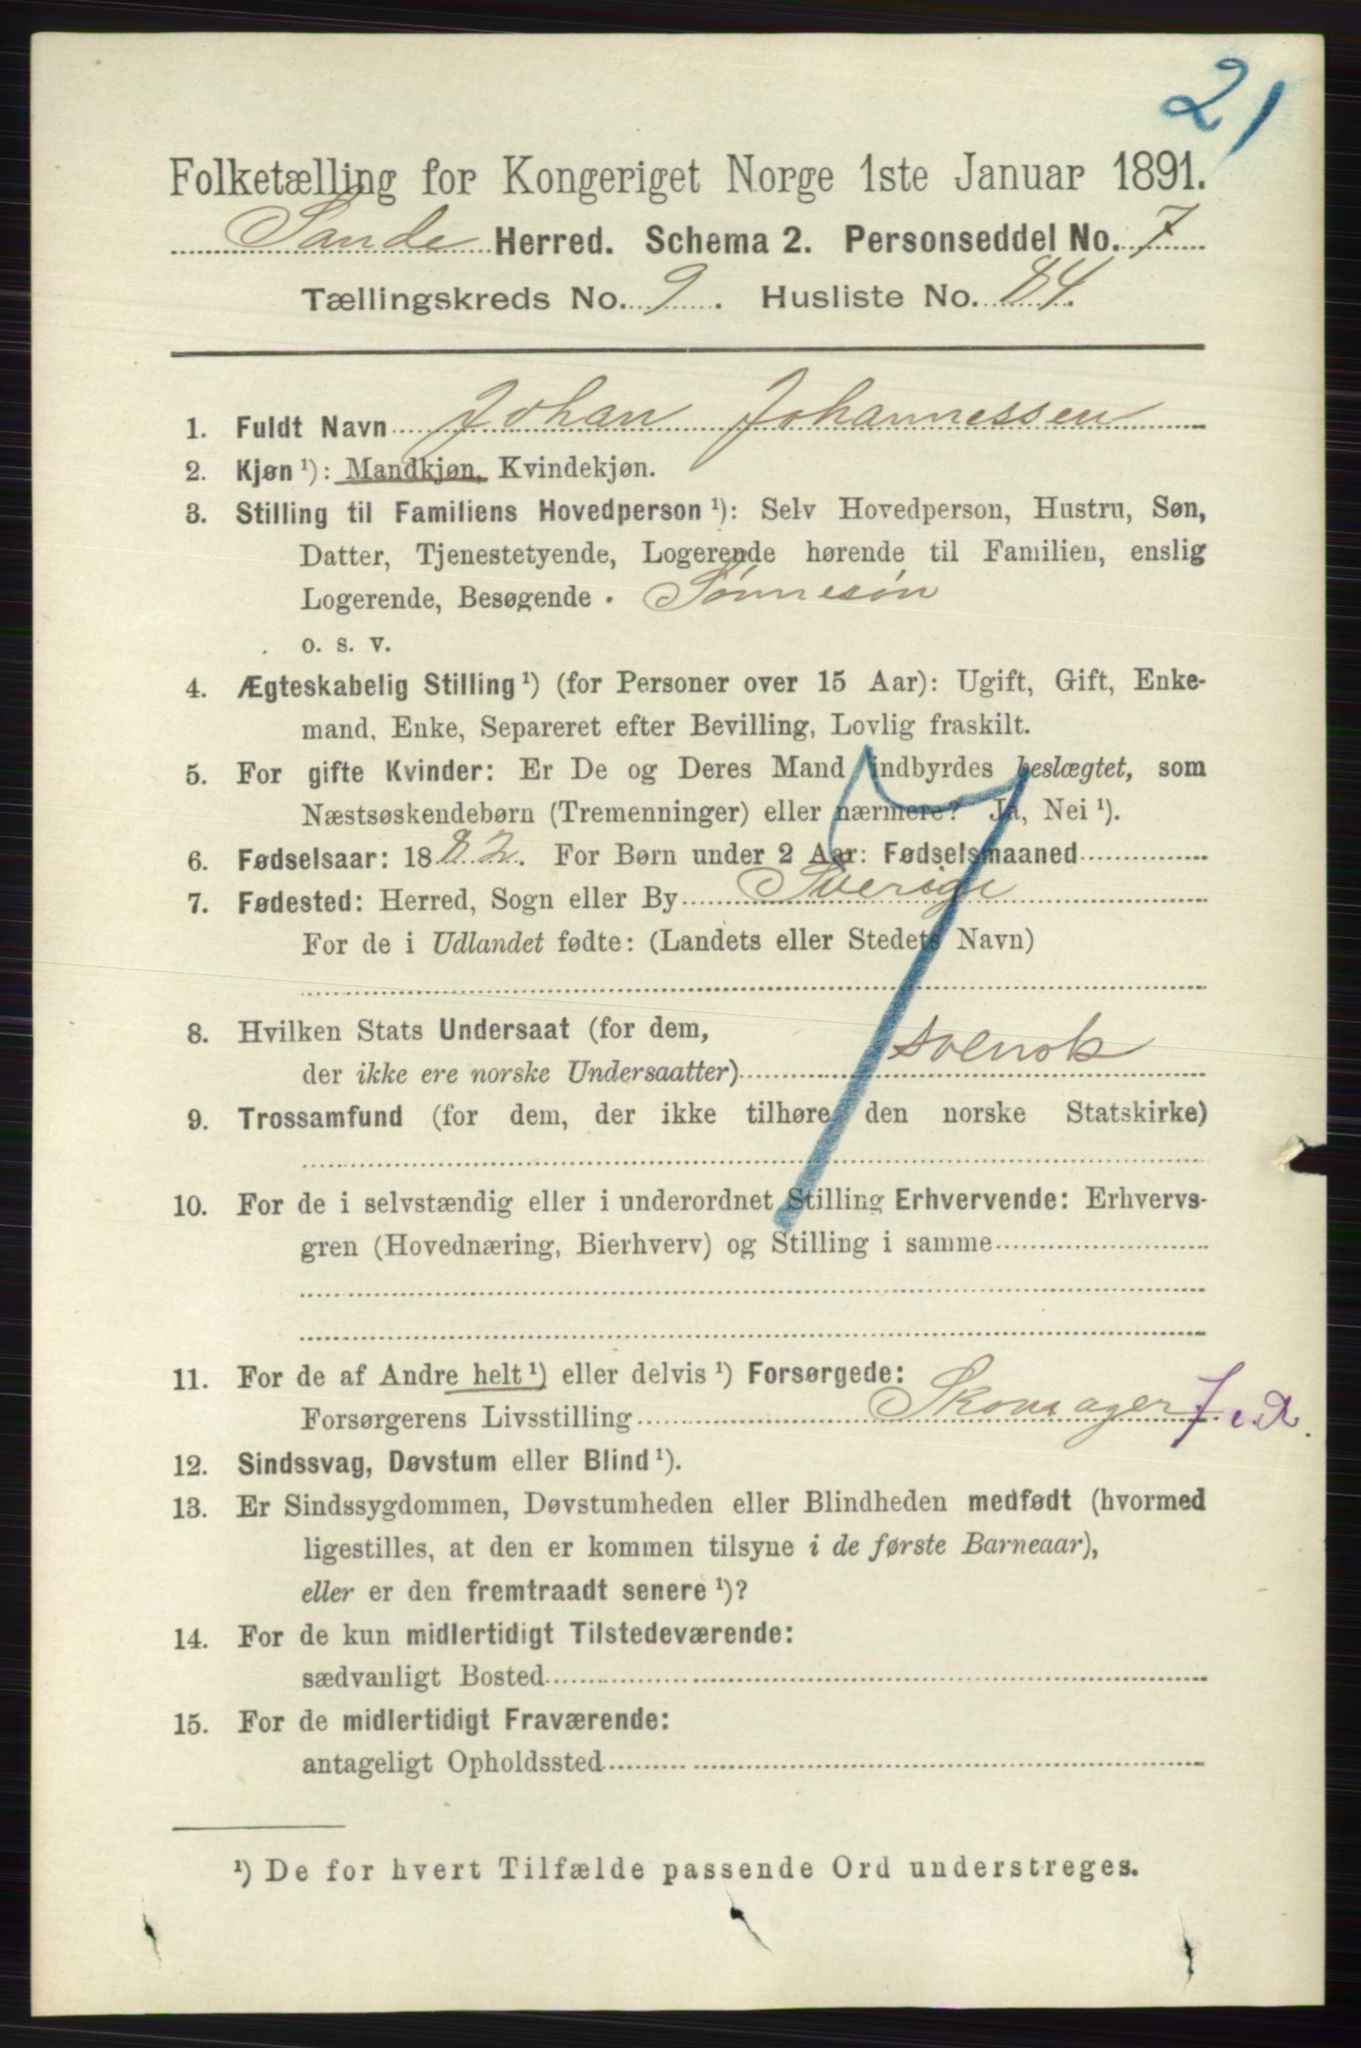 21
Folketælling for Kongeriget Norge 1ste Januar 1891.
Sande Herred. Schema 2. Personseddel No. 7
Tællingskreds No. 9. Husliste No. 84.
1. Fuldt Navn Johan Johannessen
2. Kjøn ¹): Mandkjøn, Kvindekjøn.
3. Stilling til Familiens Hovedperson ¹): Selv Hovedperson, Hustru, Søn,
Datter, Tjenestetyende, Logerende hørende til Familien, enslig
Logerende, Besøgende. Sønnesøn
o. s. v.
4. Ægteskabelig Stilling ¹) (for Personer over 15 Aar): Ugift, Gift, Enke-
mand, Enke, Separeret efter Bevilling, Lovlig fraskilt.
5. For gifte Kvinder: Er De og Deres Mand indbyrdes beslægtet, som
Næstsøskendebørn (Tremenninger) eller nærmere? Ja, Nei ¹).
6. Fødselsaar: 1882. For Børn under 2 Aar: Fødselsmaaned
7. Fødested: Herred, Sogn eller By Sverige
For de i Udlandet fødte: (Landets eller Stedets Navn)
8. Hvilken Stats Undersaat (for dem,
der ikke ere norske Undersaatter) svensk
9. Trossamfund (for dem, der ikke tilhøre den norske Statskirke)
10. For de i selvstændig eller i underordnet Stilling Erhvervende: Erhvervs-
gren (Hovednæring, Bierhverv) og Stilling i samme
11. For de af Andre helt ¹) eller delvis ¹) Forsørgede:
Forsørgerens Livsstilling Skomager
12. Sindssvag, Døvstum eller Blind ¹).
13. Er Sindssygdommen, Døvstumheden eller Blindheden medfødt (hvormed
ligestilles, at den er kommen tilsyne i de første Barneaar),
eller er den fremtraadt senere ¹)?
14. For de kun midlertidigt Tilstedeværende:
sædvanligt Bosted
15. For de midlertidigt Fraværende:
antageligt Opholdssted
¹) De for hvert Tilfælde passende Ord understreges.